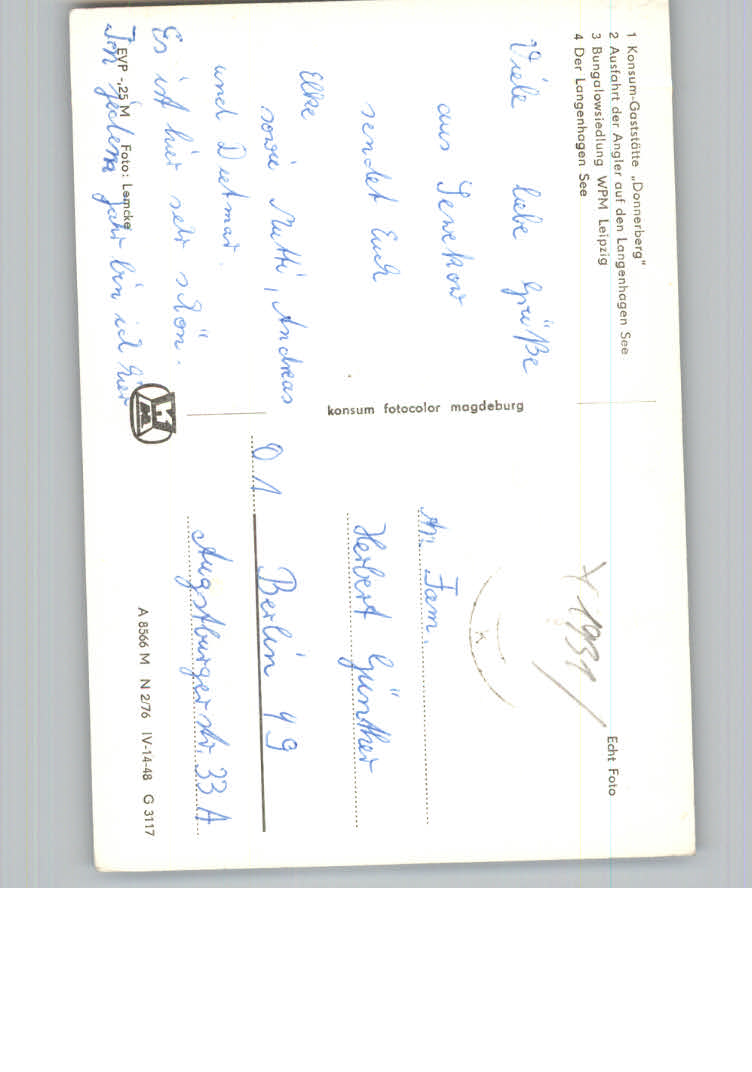 1 Konsum-Gaststätte „Donnerberg"
2 Ausfahrt der Angler auf den Langenhagen See
3 Bungalowsiedlung WPM Leipzig
4 Der Langenhagen See
Viele liebe Grüße
aus Serwkow
sendet Euch
Elke
sowie Mutti, Andreas
und Dietmar.
Es ist hier sehr schön.
In jedem Jahr bin ich hier
EVP -,25 M Foto: Lemcke
konsum fotocolor magdeburg
Echt Foto
Y 1931/
An Fam.
Herbert Günther
D 1 Berlin 49
Augstburgerstr. 33 A
A 8566 M N 2/76 IV-14-48 G 3117